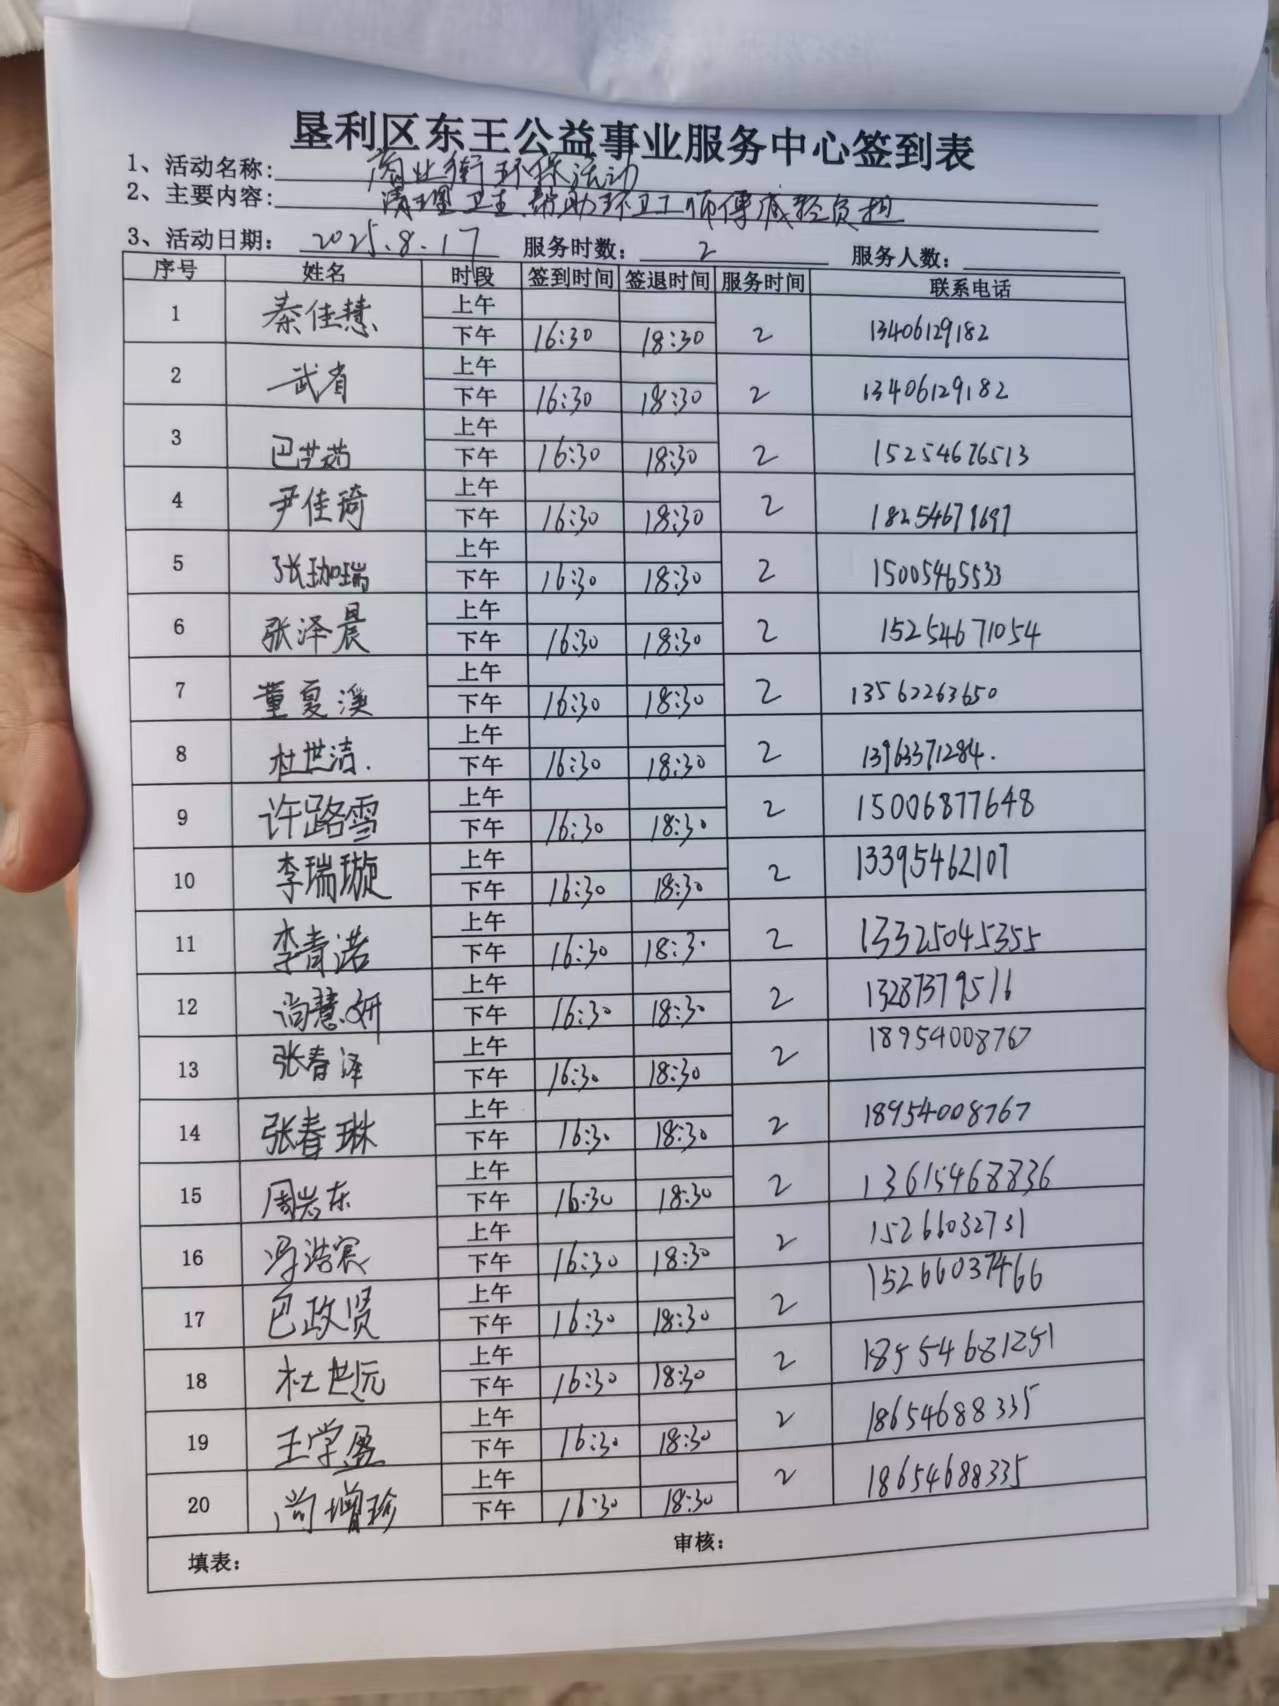 垦利区东王公益事业服务中心签到表
1、活动名称: 商业街环保活动
2、主要内容: 清理卫生.帮助环卫工师傅减轻负担
3、活动日期: 2025.8.17 服务时数: 2 服务人数:
序号 姓名 时段 签到时间 签退时间 服务时间 联系电话
1 秦佳慧 上午 下午 16:30 18:30 2 13406129182
2 武省 上午 下午 16:30 18:30 2 13406129182
3 巴艺 上午 下午 16:30 18:30 2 15254676513
4 尹佳琦 上午 下午 16:30 18:30 2
5 张珈瑞 上午 下午 16:30 18:30 2 15005465533
6 张泽晨 上午 下午 16:30 18:30 2 15254671054
7 董夏溪 上午 下午 16:30 18:30 2 13562263650
8 杜世洁. 上午 下午 16:30 18:30 2 13963371284.
9 许路雪 上午 下午 16:30 18:30 2 15006877648
10 李瑞璇 上午 下午 16:30 18:30 2 13395462107
11 李青诺 上午 下午 16:30 18:3· 2 13325045355
12 尚慧妍 上午 下午 16:30 18:30 2 13287379516
13 张春泽 上午 下午 16:30 18:30 2 18954008767
14 张春琳 上午 下午 16:30 18:30 2 18954008767
15 周岩东 上午 下午 16:30 18:30 2 13615468836
16 冯浩宾 上午 下午 16:30 18:30 2 15266032731
17 巴政贤 上午 下午 16:30 18:30 2 15266037466
18 杜世远 上午 下午 16:30 18:30 2 18554681251
19 王学盈 上午 下午 16:30 18:30 2 18654688335
20 尚增珍 上午 下午 16:30 18:30 2 18654688335
填表: 审核: